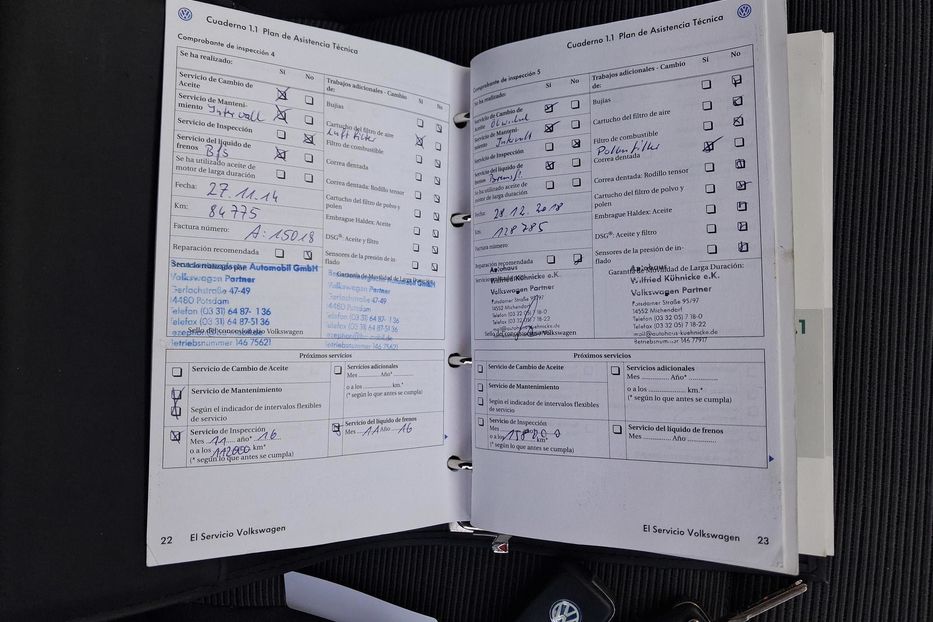 Cuaderno 1.1 Plan de Asistencia Técnica
Comprobante de inspección 4
Se ha realizado:
Sí No
Servicio de Cambio de
Aceite
Servicio de Manteni-
miento Intervall
Servicio de Inspección
Servicio del líquido de
frenos Bfs
Se ha utilizado aceite de
motor de larga duración
Fecha: 27.11.14
Km: 84775
Factura número: A:15018
Reparación recomendada
Trabajos adicionales - Cambio
de:
Sí No
Bujías
Cartucho del filtro de aire
Luftfilter
Filtro de combustible
Correa dentada
Correa dentada: Rodillo tensor
Cartucho del filtro de polvo y
polen
Embrague Haldex: Aceite
DSG®: Aceite y filtro
Sensores de la presión de in-
flado
Automobil GmbH
Volkswagen Partner
Gerlachstraße 47-49
14480 Potsdam
Telefon (03 31) 64 87- 1 36
Telefax (03 31) 64 87-51 36
Betriebsnummer 146 75621
Sello del concesionario Volkswagen
Garantía de Movilidad de Larga Duración:
Volkswagen Partner
Gerlachstraße 47-49
14480 Potsdam
Telefon (03 31) 64 87- 1 36
Telefax (03 31) 64 87-51 36
Betriebsnummer 146 75621
Próximos servicios
Servicio de Cambio de Aceite
Servicio de Mantenimiento
Según el indicador de intervalos flexibles
de servicio
Servicio de Inspección
Mes 11 año* 16
o a los 112000 km*
(* según lo que antes se cumpla)
Servicios adicionales
Mes Año*
o a los km.*
(* según lo que antes se cumpla)
Servicio del líquido de frenos
Mes 11 Año 16
22 El Servicio Volkswagen
Cuaderno 1.1 Plan de Asistencia Técnica
Comprobante de inspección 5
Se ha realizado:
Sí No
Servicio de Cambio de
Aceite Ölwechsel
Servicio de Manteni-
miento Intervall
Servicio de Inspección
Servicio del líquido de
frenos Bremsfl.
Se ha utilizado aceite de
motor de larga duración
Fecha: 21.12.2018
Km: 128785
Factura número:
Reparación recomendada
Trabajos adicionales - Cambio
de:
Sí No
Bujías
Cartucho del filtro de aire
Filtro de combustible
Pollenfilter
Correa dentada
Correa dentada: Rodillo tensor
Cartucho del filtro de polvo y
polen
Embrague Haldex: Aceite
DSG®: Aceite y filtro
Sensores de la presión de in-
flado
Autohaus
Wilfried Kühnicke e.K.
Volkswagen Partner
Potsdamer Straße 95/97
14552 Michendorf
Telefon (03 32 05) 7 18-0
Telefax (03 32 05) 7 18-22
Sello del concesionario Volkswagen
Garantía de Movilidad de Larga Duración:
Autohaus
Wilfried Kühnicke e.K.
Volkswagen Partner
Potsdamer Straße 95/97
14552 Michendorf
Telefon (03 32 05) 7 18-0
Telefax (03 32 05) 7 18-22
mail@autohaus-kuehnicke.de
Betriebsnummer 146 77917
Próximos servicios
Servicio de Cambio de Aceite
Servicio de Mantenimiento
Según el indicador de intervalos flexibles
de servicio
Servicio de Inspección
Mes
o a los km*
(* según lo que antes se cumpla)
Servicios adicionales
Mes Año*
o a los km.*
(* según lo que antes se cumpla)
Servicio del líquido de frenos
Mes Año*
El Servicio Volkswagen 23
1